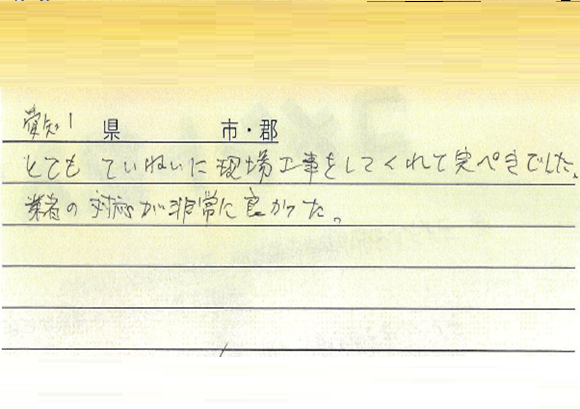 愛知 県 市・郡
とても ていねいに 現場工事をしてくれて 完ぺきでした。
業者の対応が非常に良かった。